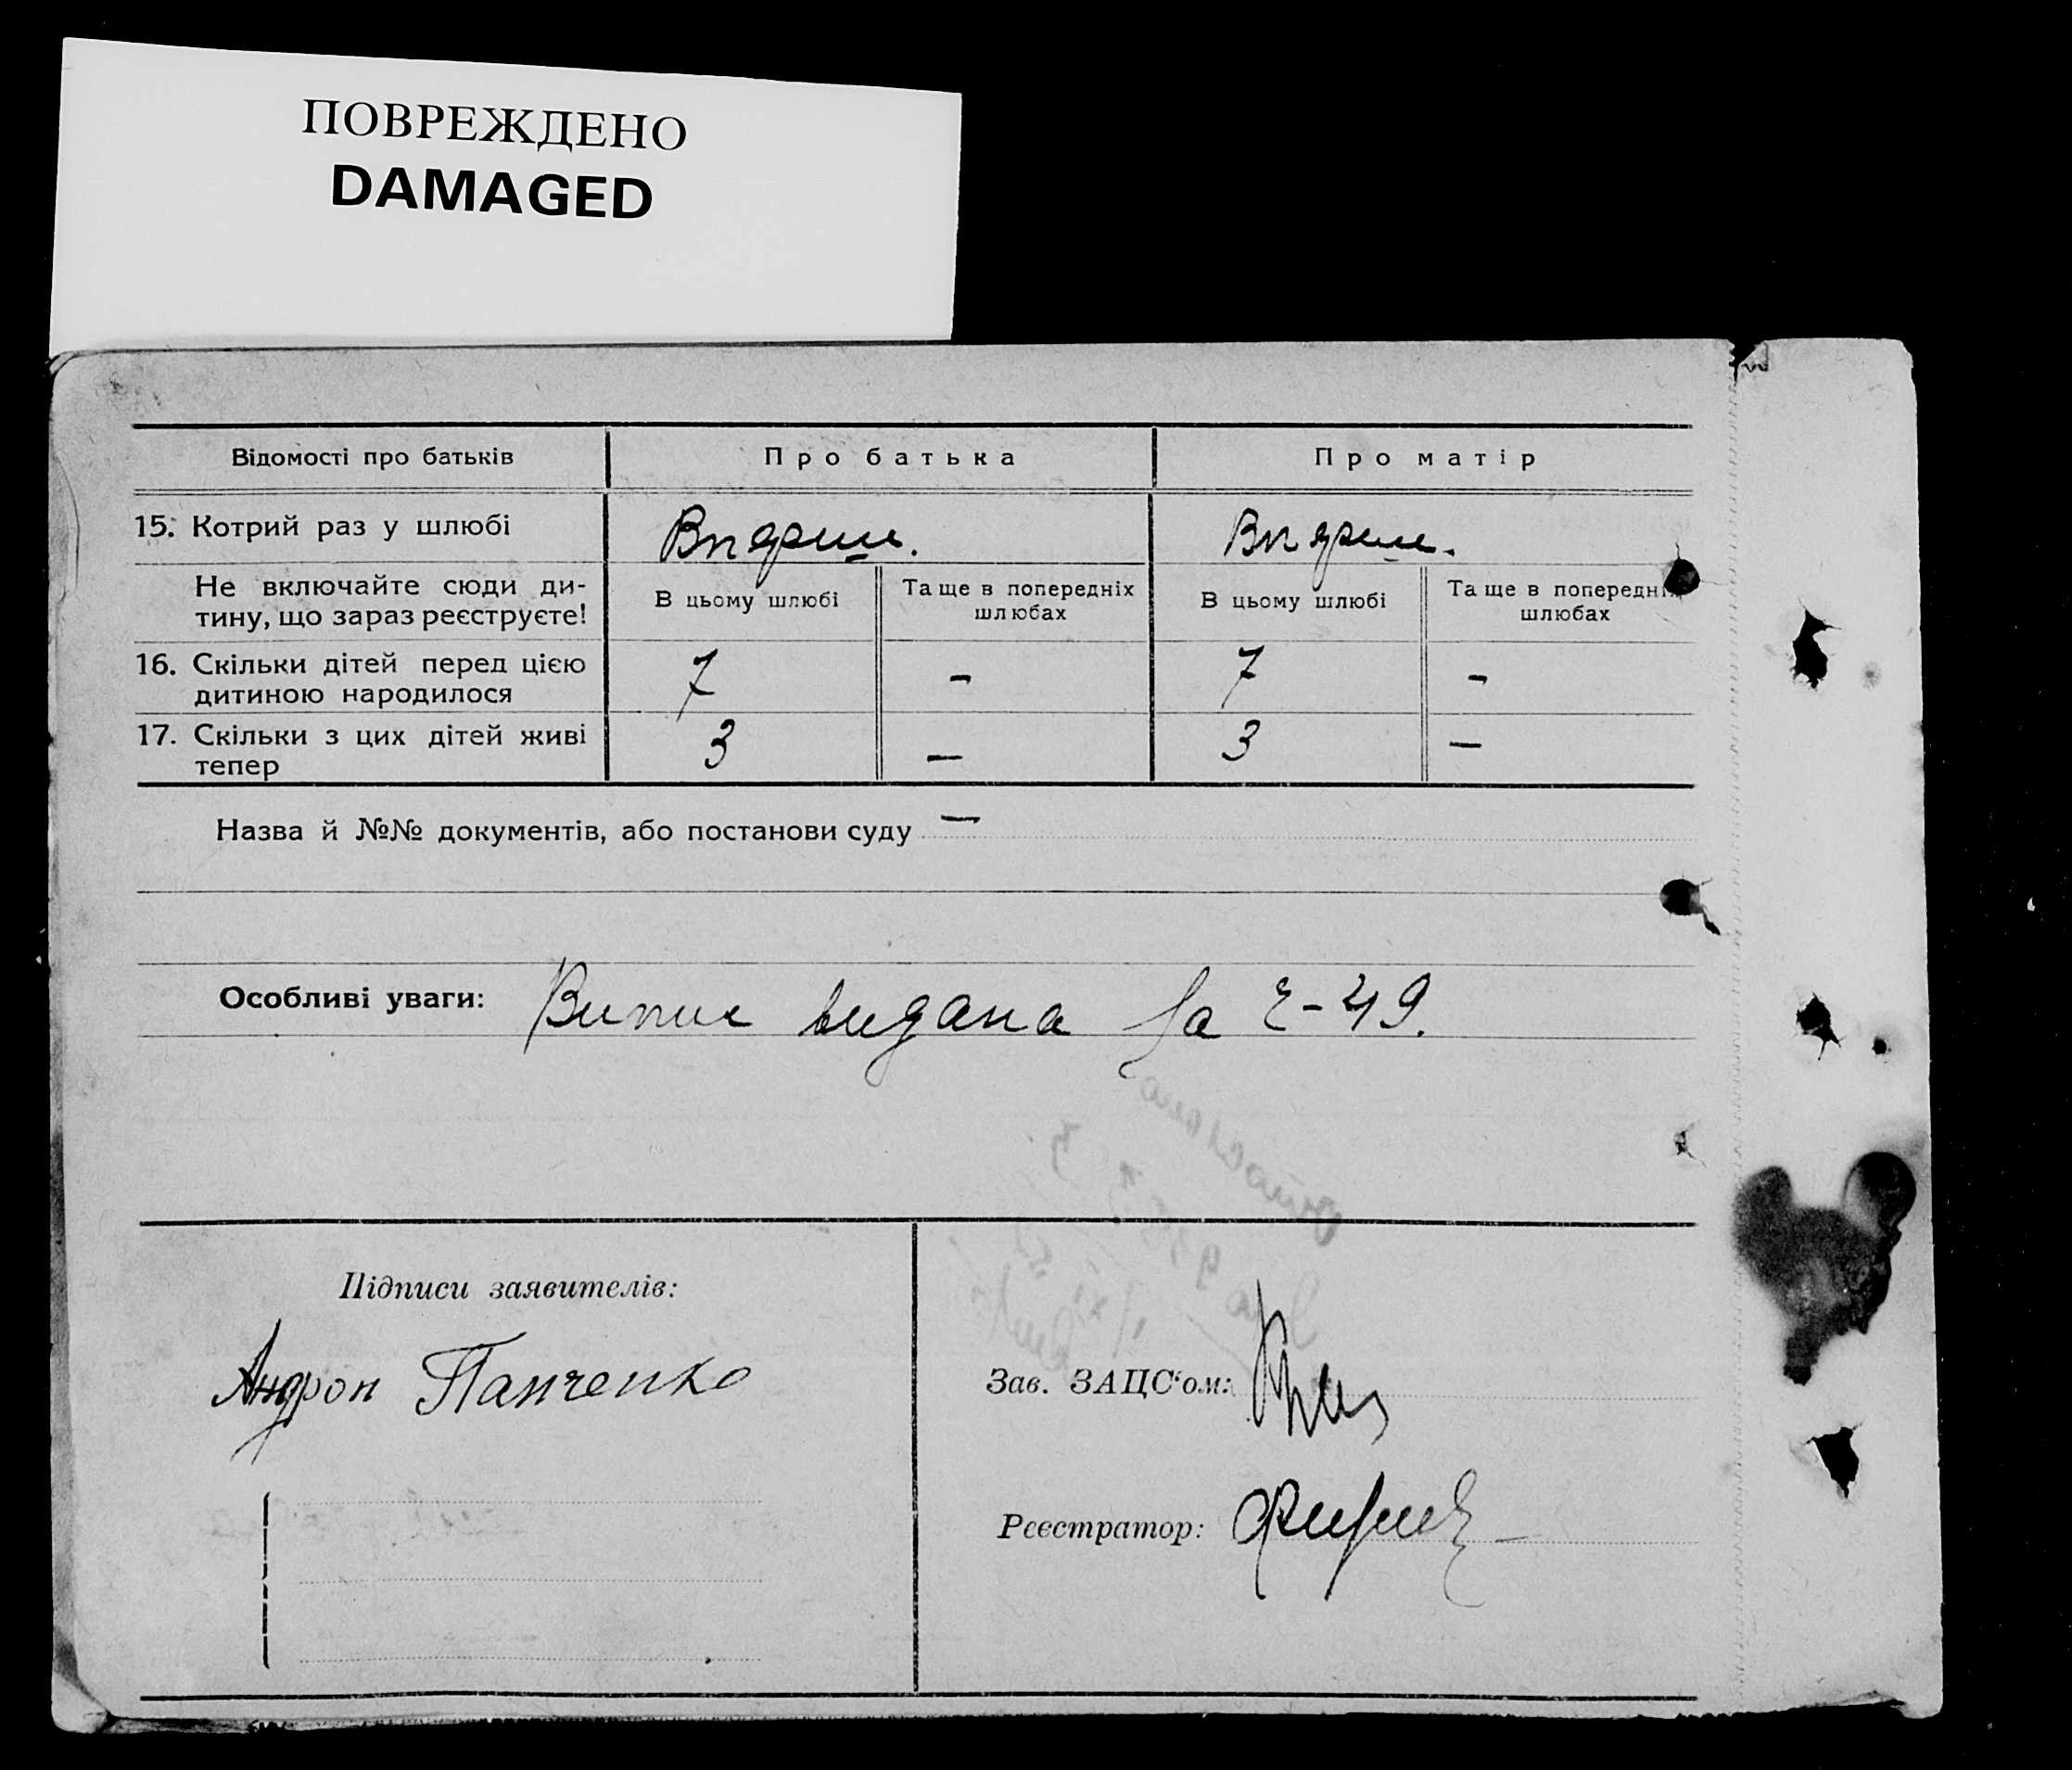 ПОВРЕЖДЕНО
DAMAGED
Відомості про батьків
Про батька
Про матір
15. Котрий раз у шлюбі
Впдрше.
Впдрше.
Не включайте сюди ди-
тину, що зараз реєструєте!
В цьому шлюбі
Та ще в попередніх
шлюбах
В цьому шлюбі
Та ще в попередніх
шлюбах
16. Скільки дітей перед цією
дитиною народилося
7
-
7
-
17. Скільки з цих дітей живі
тепер
3
—
3
—
Назва й №№ документів, або постанови суду —
Особливі уваги: Випис видана За 2-49.
Підписи заявителів:
Андрон Панченко
Зав. ЗАЦС‘ом:
Реєстратор: